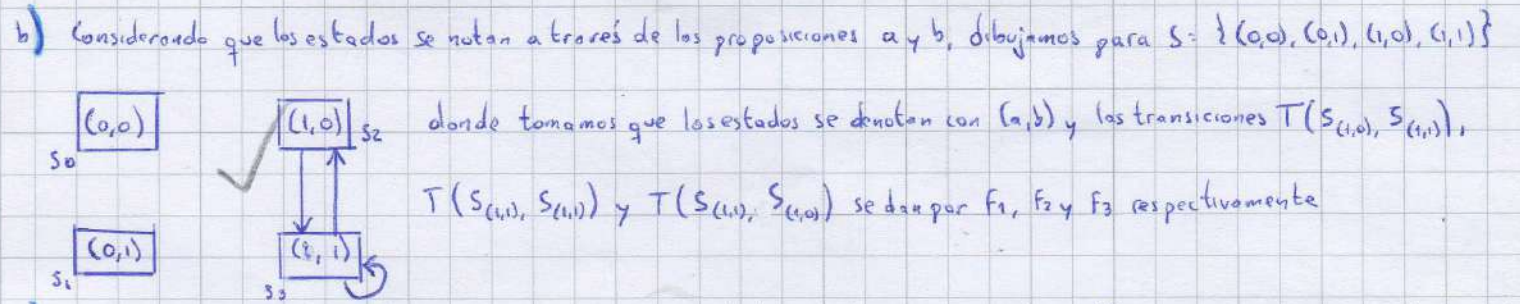 b) Considerando que los estados se notan a través de las proposiciones a y b, dibujamos para S = {(0,0), (0,1), (1,0), (1,1)}
(0,0) (1,0) S2 donde tomamos que los estados se denotan con (a,b) y las transiciones T(S(1,0), S(1,1)),
S0
T(S(1,1), S(1,1)) y T(S(1,1), S(1,0)) se dan por F1, F2 y F3 respectivamente
(0,1) (1,1)
S1 S3